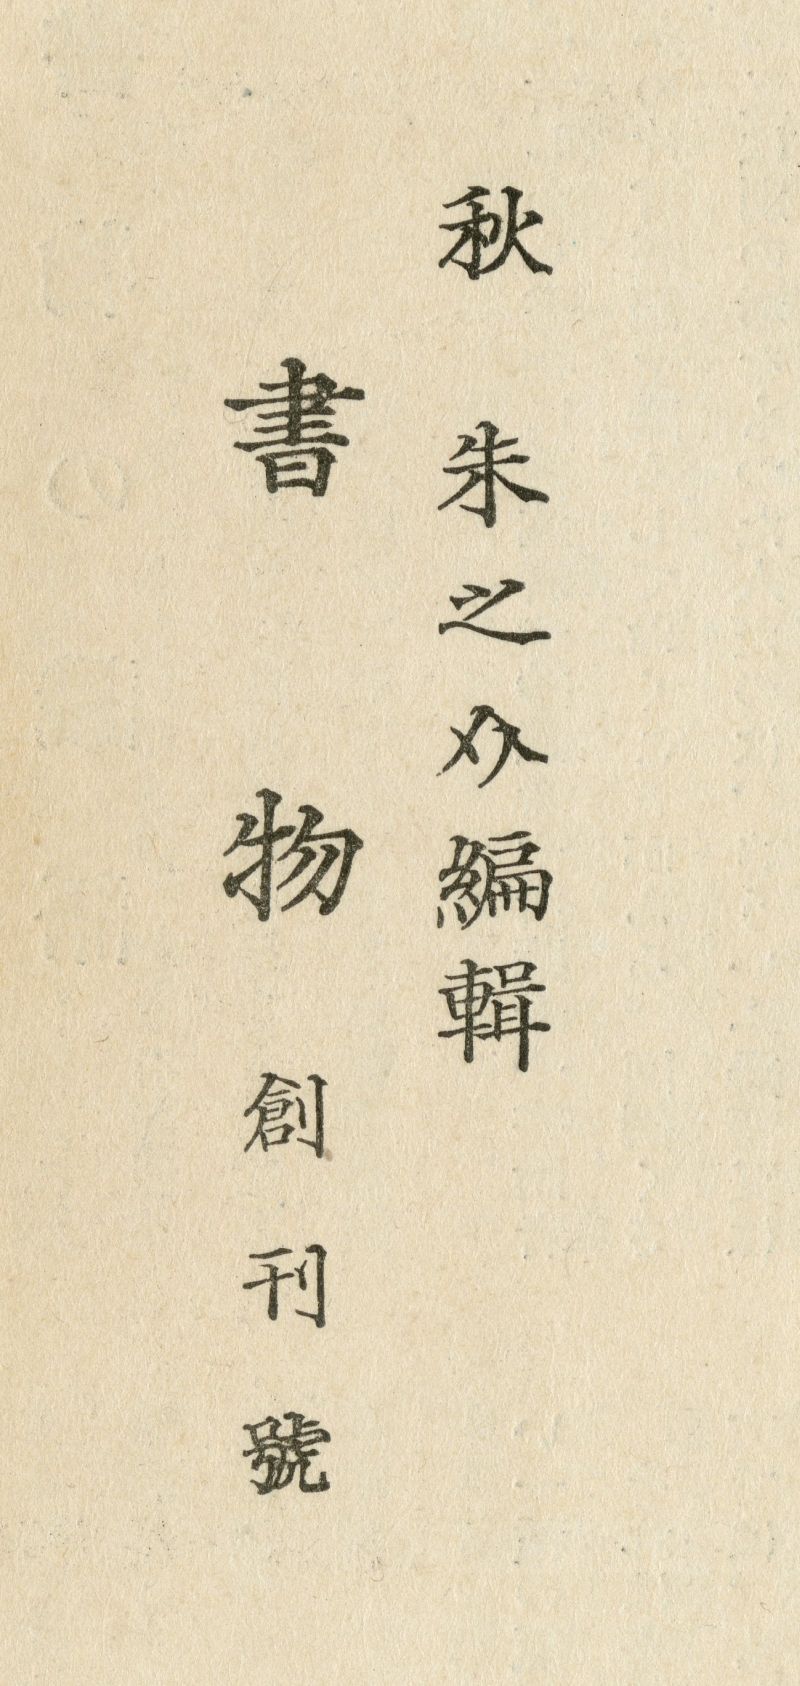 秋朱之介編輯
書物創刊號